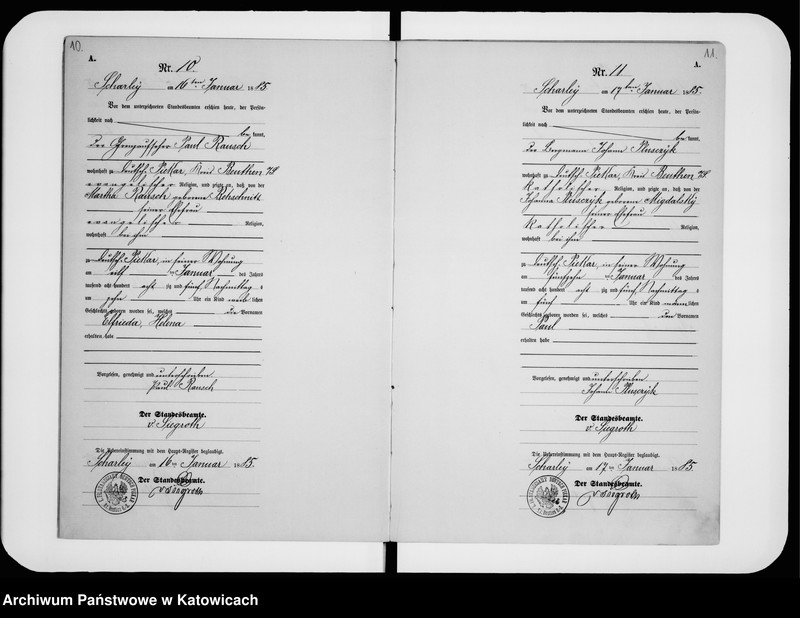 10.
A.
Nr. 10.
Scharley am 16ten Januar 1885.
Vor dem unterzeichneten Standesbeamten erschien heute, der Persön-
lichkeit nach
bekannt,
der Grenzaufseher Paul Rausch
wohnhaft zu Deutsch-Piekar, Kreis Beuthen
evangelischer Religion, und zeigte an, daß von der
Martha Rausch geborene
seiner Ehefrau
evangelischer Religion,
wohnhaft bei ihm
zu Deutsch-Piekar, in seiner Wohnung
am Januar des Jahres
tausend acht hundert acht zig und fünf Nachmittag s
um zehn Uhr ein Kind weiblichen
Geschlechts geboren worden sei, welches die Vornamen
Elfrieda, Helena
erhalten habe
Vorgelesen, genehmigt und unterschrieben
Paul Rausch
Der Standesbeamte.
v. Siegroth
Die Uebereinstimmung mit dem Haupt-Register beglaubigt.
Scharley am 16ten Januar 1885.
Der Standesbeamte.
v. Siegroth
11.
A.
Nr. 11
Scharley am 17ten Januar 1885.
Vor dem unterzeichneten Standesbeamten erschien heute, der Persön-
lichkeit nach
bekannt,
der Bergmann Johann
wohnhaft zu Deutsch-Piekar, Kreis Beuthen
katholischer Religion, und zeigte an, daß von der
Johanna geborene Migdalskÿ
seiner Ehefrau
katholischer Religion,
wohnhaft bei ihm
zu Deutsch-Piekar, in seiner Wohnung
am fünfzehn ten Januar des Jahres
tausend acht hundert acht zig und fünf Nachmittag s
um fünf Uhr ein Kind männlichen
Geschlechts geboren worden sei, welches den Vornamen
Paul
erhalten habe
Vorgelesen, genehmigt und unterschrieben
Johann
Der Standesbeamte.
v. Siegroth
Die Uebereinstimmung mit dem Haupt-Register beglaubigt.
Scharley am 17ten Januar 1885.
Der Standesbeamte.
v. Siegroth
Archiwum Państwowe w Katowicach